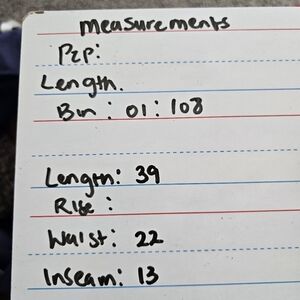 measurements
P2P:
Length.
Bin: 01: 108
Length: 39
Rise:
Waist: 22
Inseam: 13